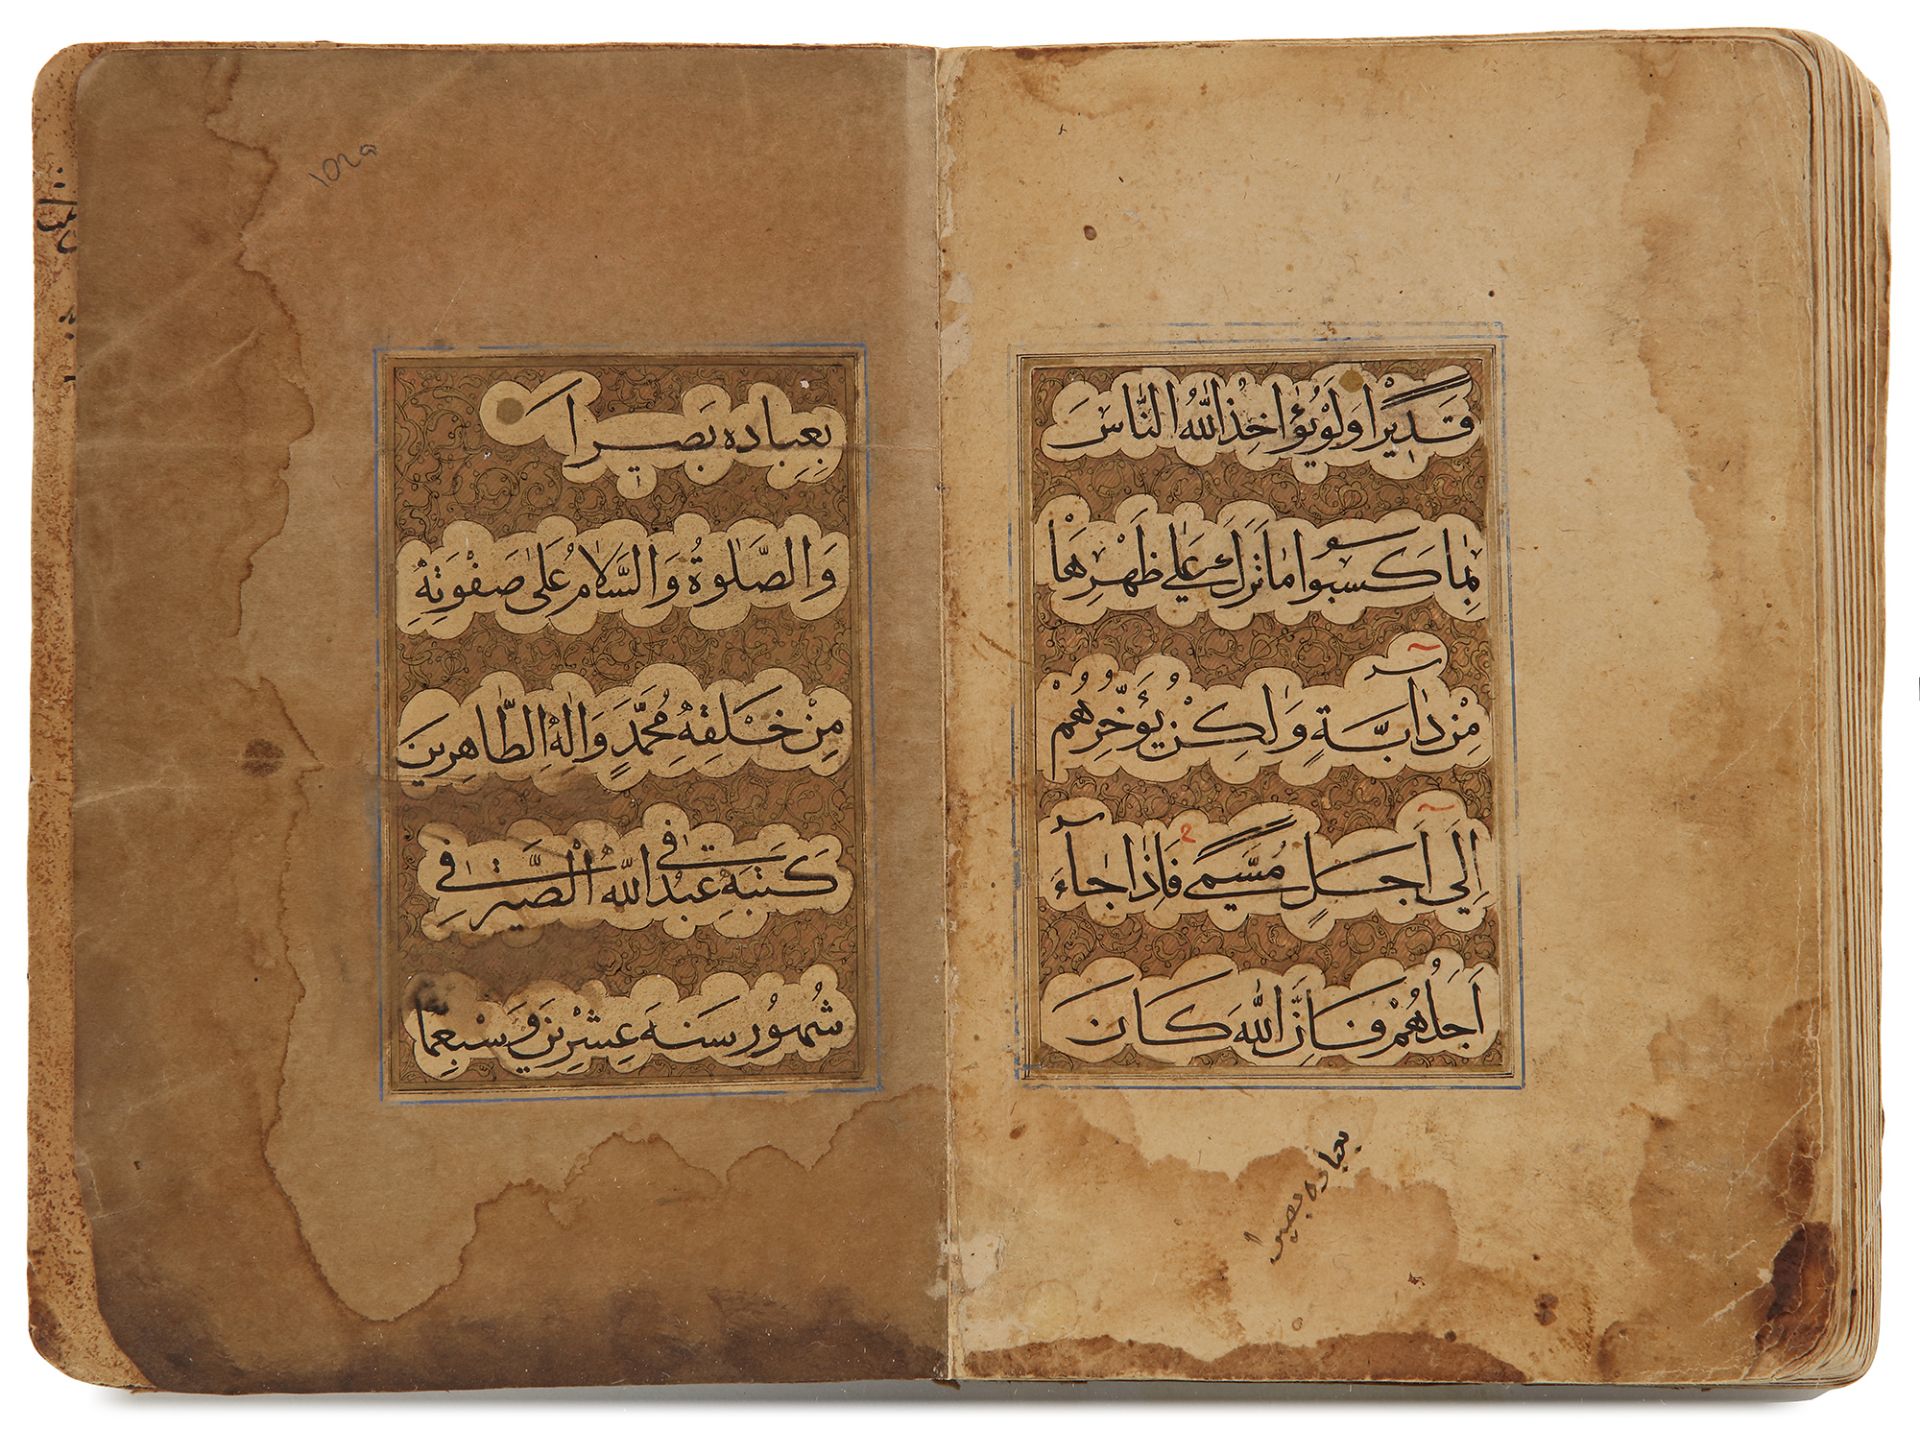 قَدِيْرًا وَلَوْ يُؤَاخِذُ اللّٰهُ النَّاسَ
بِمَا كَسَبُوا مَا تَرَكَ عَلٰى ظَهْرِهَا
مِنْ دَابَّةٍ وَلٰكِنْ يُؤَخِّرُهُمْ
إِلَىٓ أَجَلٍ مُسَمًّى فَإِذَا جَآءَ
أَجَلُهُمْ فَإِنَّ اللّٰهَ كَانَ
بعباده بصيرا
١٥٢٩
بِعِبَادِهِ بَصِيرًا
وَالصَّلٰوةُ وَالسَّلَامُ عَلٰى صَفْوَتِهِ
مِنْ خَلْقِهِ مُحَمَّدٍ وَاٰلِهِ الطَّاهِرِينَ
كَتَبَهُ عَبْدُ اللّٰهِ الصَّيْرَفِي فِي
شُهُورِ سَنَةَ عِشْرِينَ وَسَبْعِمَا